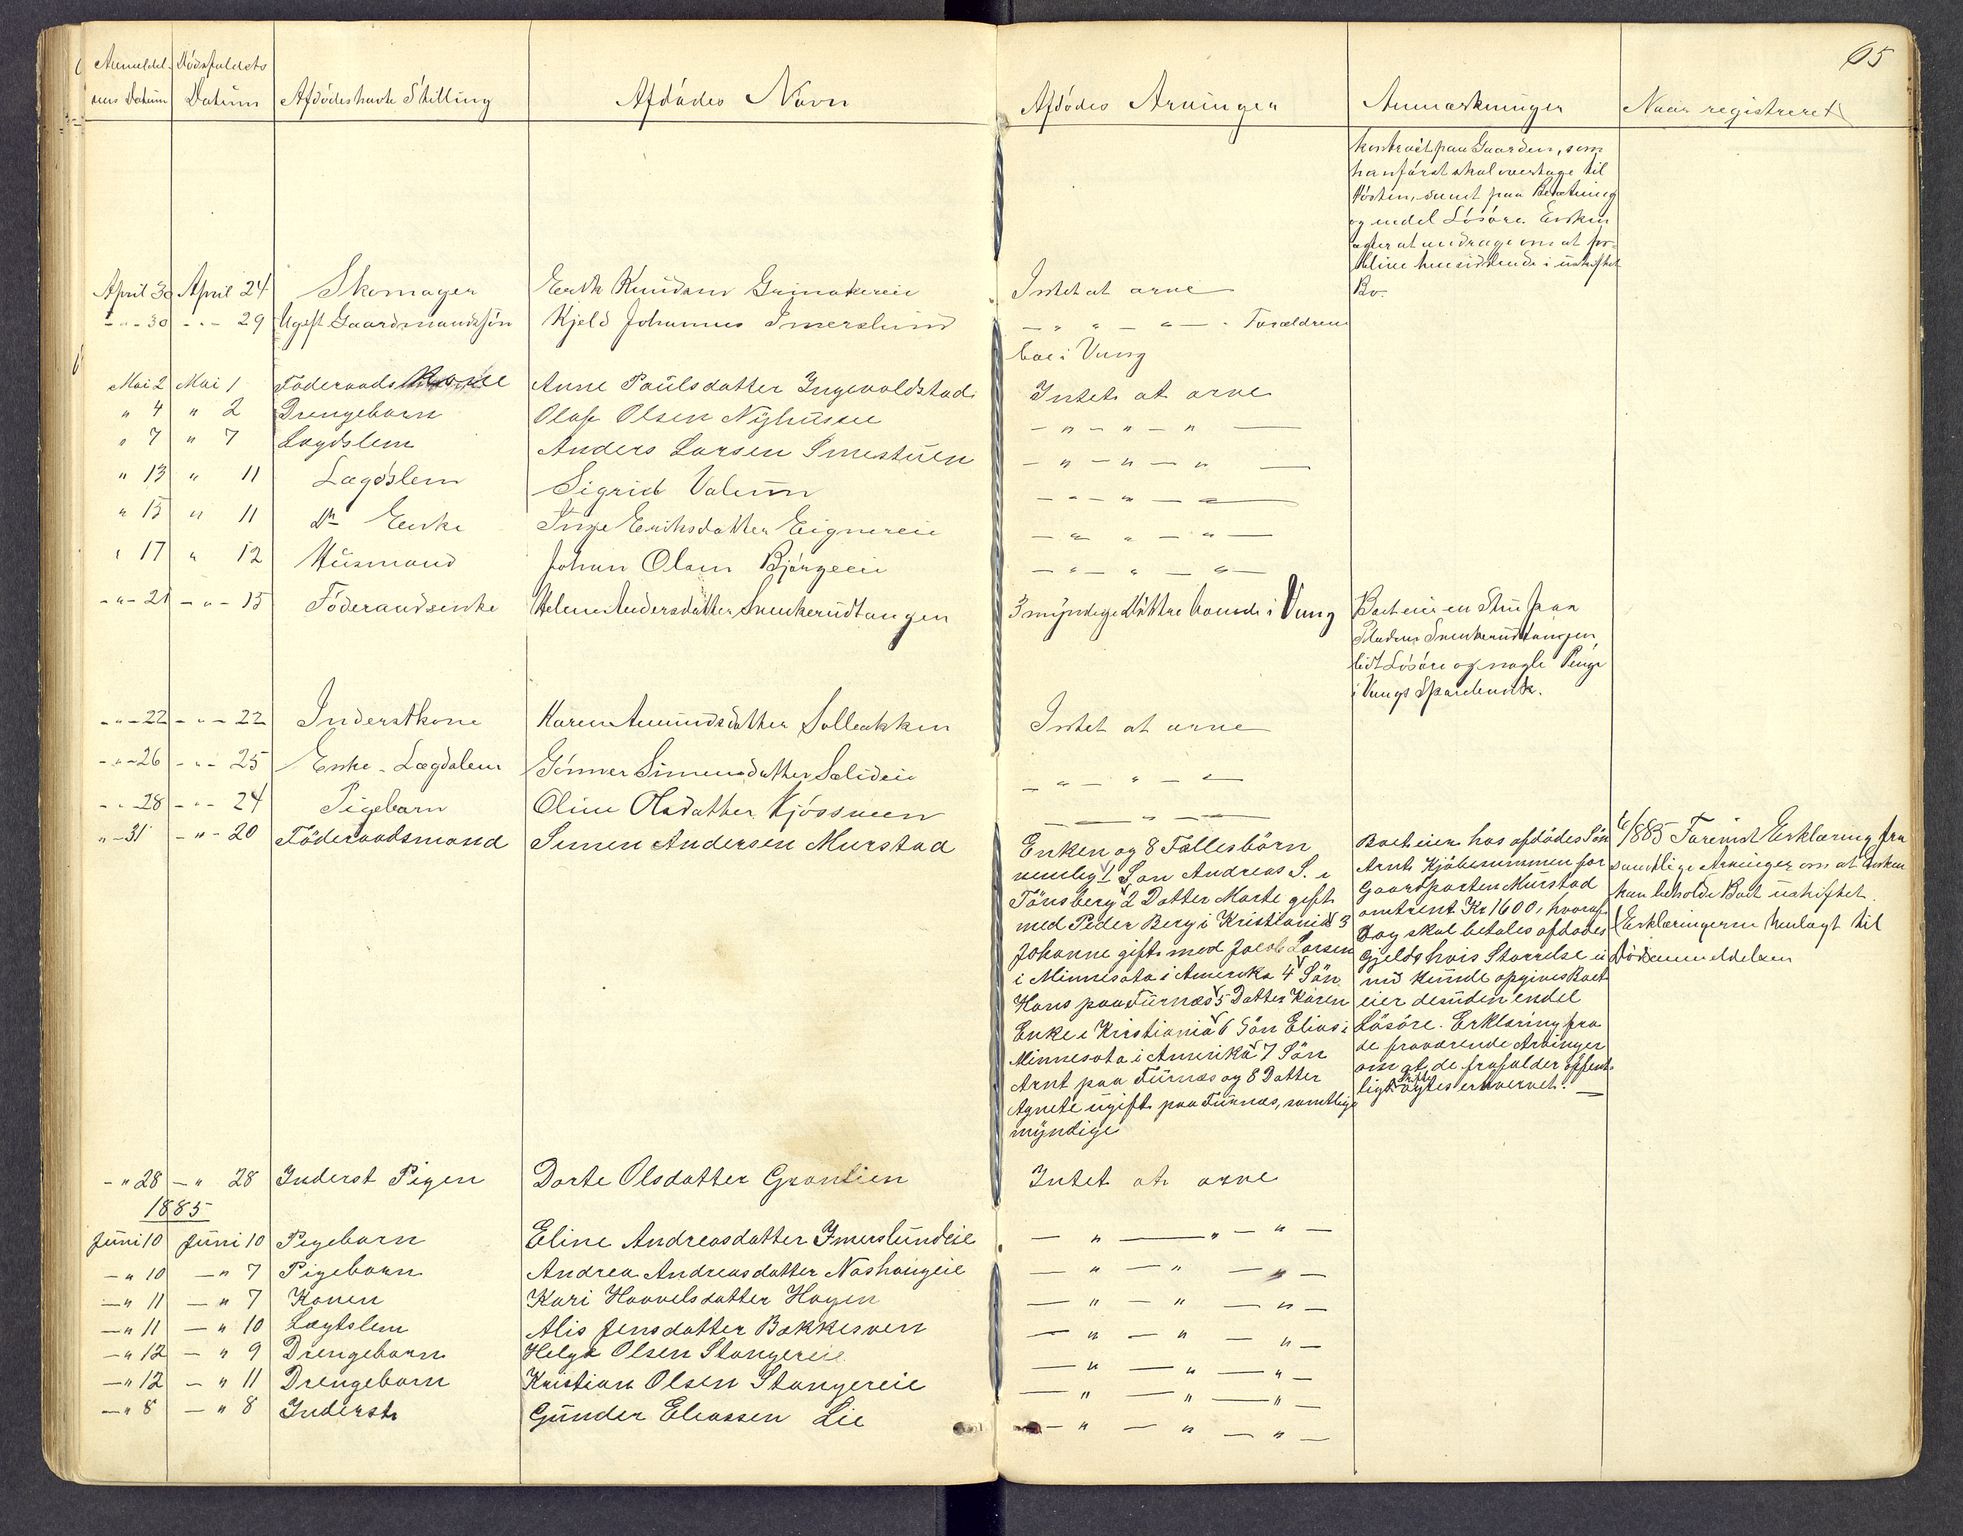 65
Anmeldel- Dødsfaldets Afdødes Navn Afdødes Arvinger Anmærkninger Naar registreret
sens Datum Datum Afdødes havte Stilling
kontract paa Gaarden, som
han først skal overtage til
Høsten, samt paa Besætning
og endel Løsøre. Enken
agter at andrage om at for-
blive hensiddende i uskiftet
Bo.
April 30 April 24 Skomager Erik Knudsen Grinakereie Intet at arve
- " - 30 - " - 29 Ugift Gaardmandssøn Kjeld Johannes Imerslund - " " - " - Forældrene
boe i Vang
Mai 2 Mai 1 Föderaads Anne Paulsdatter Ingevoldstad Intet at arve
" 4 " 2 Drengebarn Olaf Olsen Nyhusee - " - " - " -
" 7 " 7 Lægdslem Anders Larsen Smestuen - " - " - " -
" 13 " 11 Lægdslem Sigrid Valeun - " - " - " -
" 15 " 11 Do Enke Inge Eriksdatter Eignereie - " " - " -
" 17 " 12 Husmand Johan Olsen Bjørgeeie - " - " - " -
- " - 21 - " - 15 Föderaadsenke Helene Andersdatter Svenkerudtangen 3 myndige Døttre boende i Vang Boet eier en Stue paa
Pladsen Svenkerudtangen,
lidt Løsøre og nogle Penge
i Vangs Sparebank.
- " - 22 - " - 22 Inderstkone Karen Amundsdatter Solbakken Intet at arve
- " - 26 - " - 25 Enke - Lægdslem Gönner Simensdatter Sælideie - " - " - " -
- " - 28 - " - 24 Pigebarn Oline Olsdatter Kjösveen - - " -
" - 31 - " - 20 Föderaadsmand Simen Andersen Murstad Enken og 8 Fællesbörn
nemlig 1 Søn Andreas S. i
Tönsberg 2 Datter Marte gift
med Peder Berg i Kristiania 3
Johanne gift med Jacob Larsen
i Minnesota i Amerika 4 Sön
Hans paa Furnæs 5 Datter Karen
Enke i Kristiania 6 Sön Elias i
Minnesota i Amerika 7 Sön
Arnt paa Furnæs og 8 Datter
Agnete ugift paa Furnæs, samtlige
myndige
Boet eier hos afdödes Sön
Arnt Kjöbesummen for
Gaardparten Murstad
omtrent Kr 1600, hvoraf
dog skal betales afdödes
Gjeld hvis Størrelse ei
nu kunde opgives Boet
eier desuden endel
Løsöre. Erklæring fra
de fraværende Arvinger
om at de frafalder offent-
ligt Skifte ervervet. -
6/ 1885 Foreviist Erklæring fra
samtlige Arvinger om at Enken
kan beholde Boet uskiftet.
Erklæringerne henlagt til
Dødsanmeldelsen
- " 28 - " 28 Inderst Pigen Dorte Olsdatter Granlien Intet at arve
1885
Juni 10 Juni 10 Pigebarn Eline Andreasdatter Imerslundeie - " - " - " -
- " 10 - " 7 Pigebarn Andrea Andreasdatter Nashaugeie - " - " - " -
- " 11 - " 7 Konen Kari Haavelsdatter Hagen - " - " - " -
- " 11 - " 10 Lægtslem Alis Jensdatter Bakkesven - " - " - " -
- " 12 - " 9 Drengebarn Helge Olsen Stangereie - " - " - " -
- " 12 - " 11 Drengebarn Kristian Olsen Stangereie - " - " - " -
- " 8 - " 8 Inderst Gunder Eliassen Lie - " - " - " -